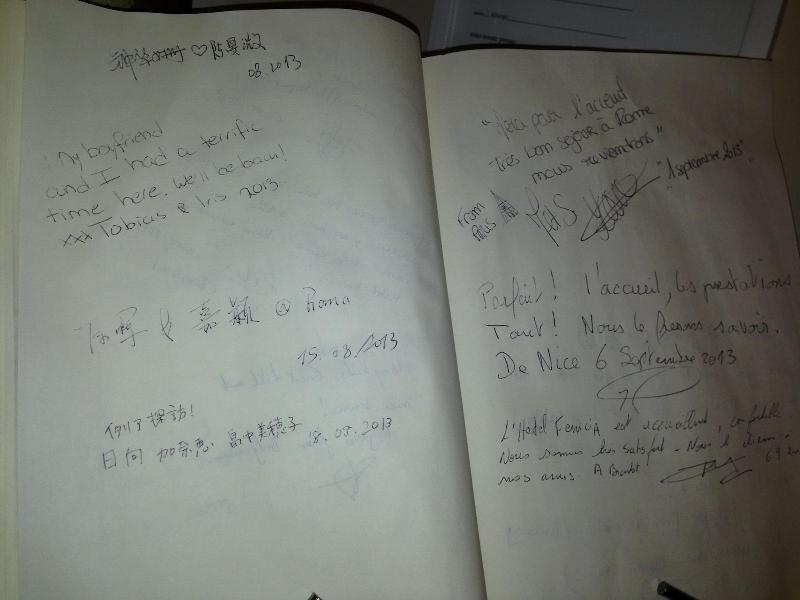 陈曼微
08.2013
My boyfriend
and I had a terrific
time here. We'll be back!
xxx Tobias & Iris 2013
& 嘉颖 @ Roma
15.08/2013
探訪!
日向 加奈恵 畠中美穂子 18.08.2013
pour l'accueil
très bon sejour à Rome
nous reviendrons"
"1 septembre 2013"
From
Paris
Parfait! l'accueil, les prestations
Tout! Nous le ferons savoir.
De Nice 6 Septembre 2013
L'Hotel est accueillant, confortable.
Nous sommes très satisfait - Nous le dirons
nos amis. A